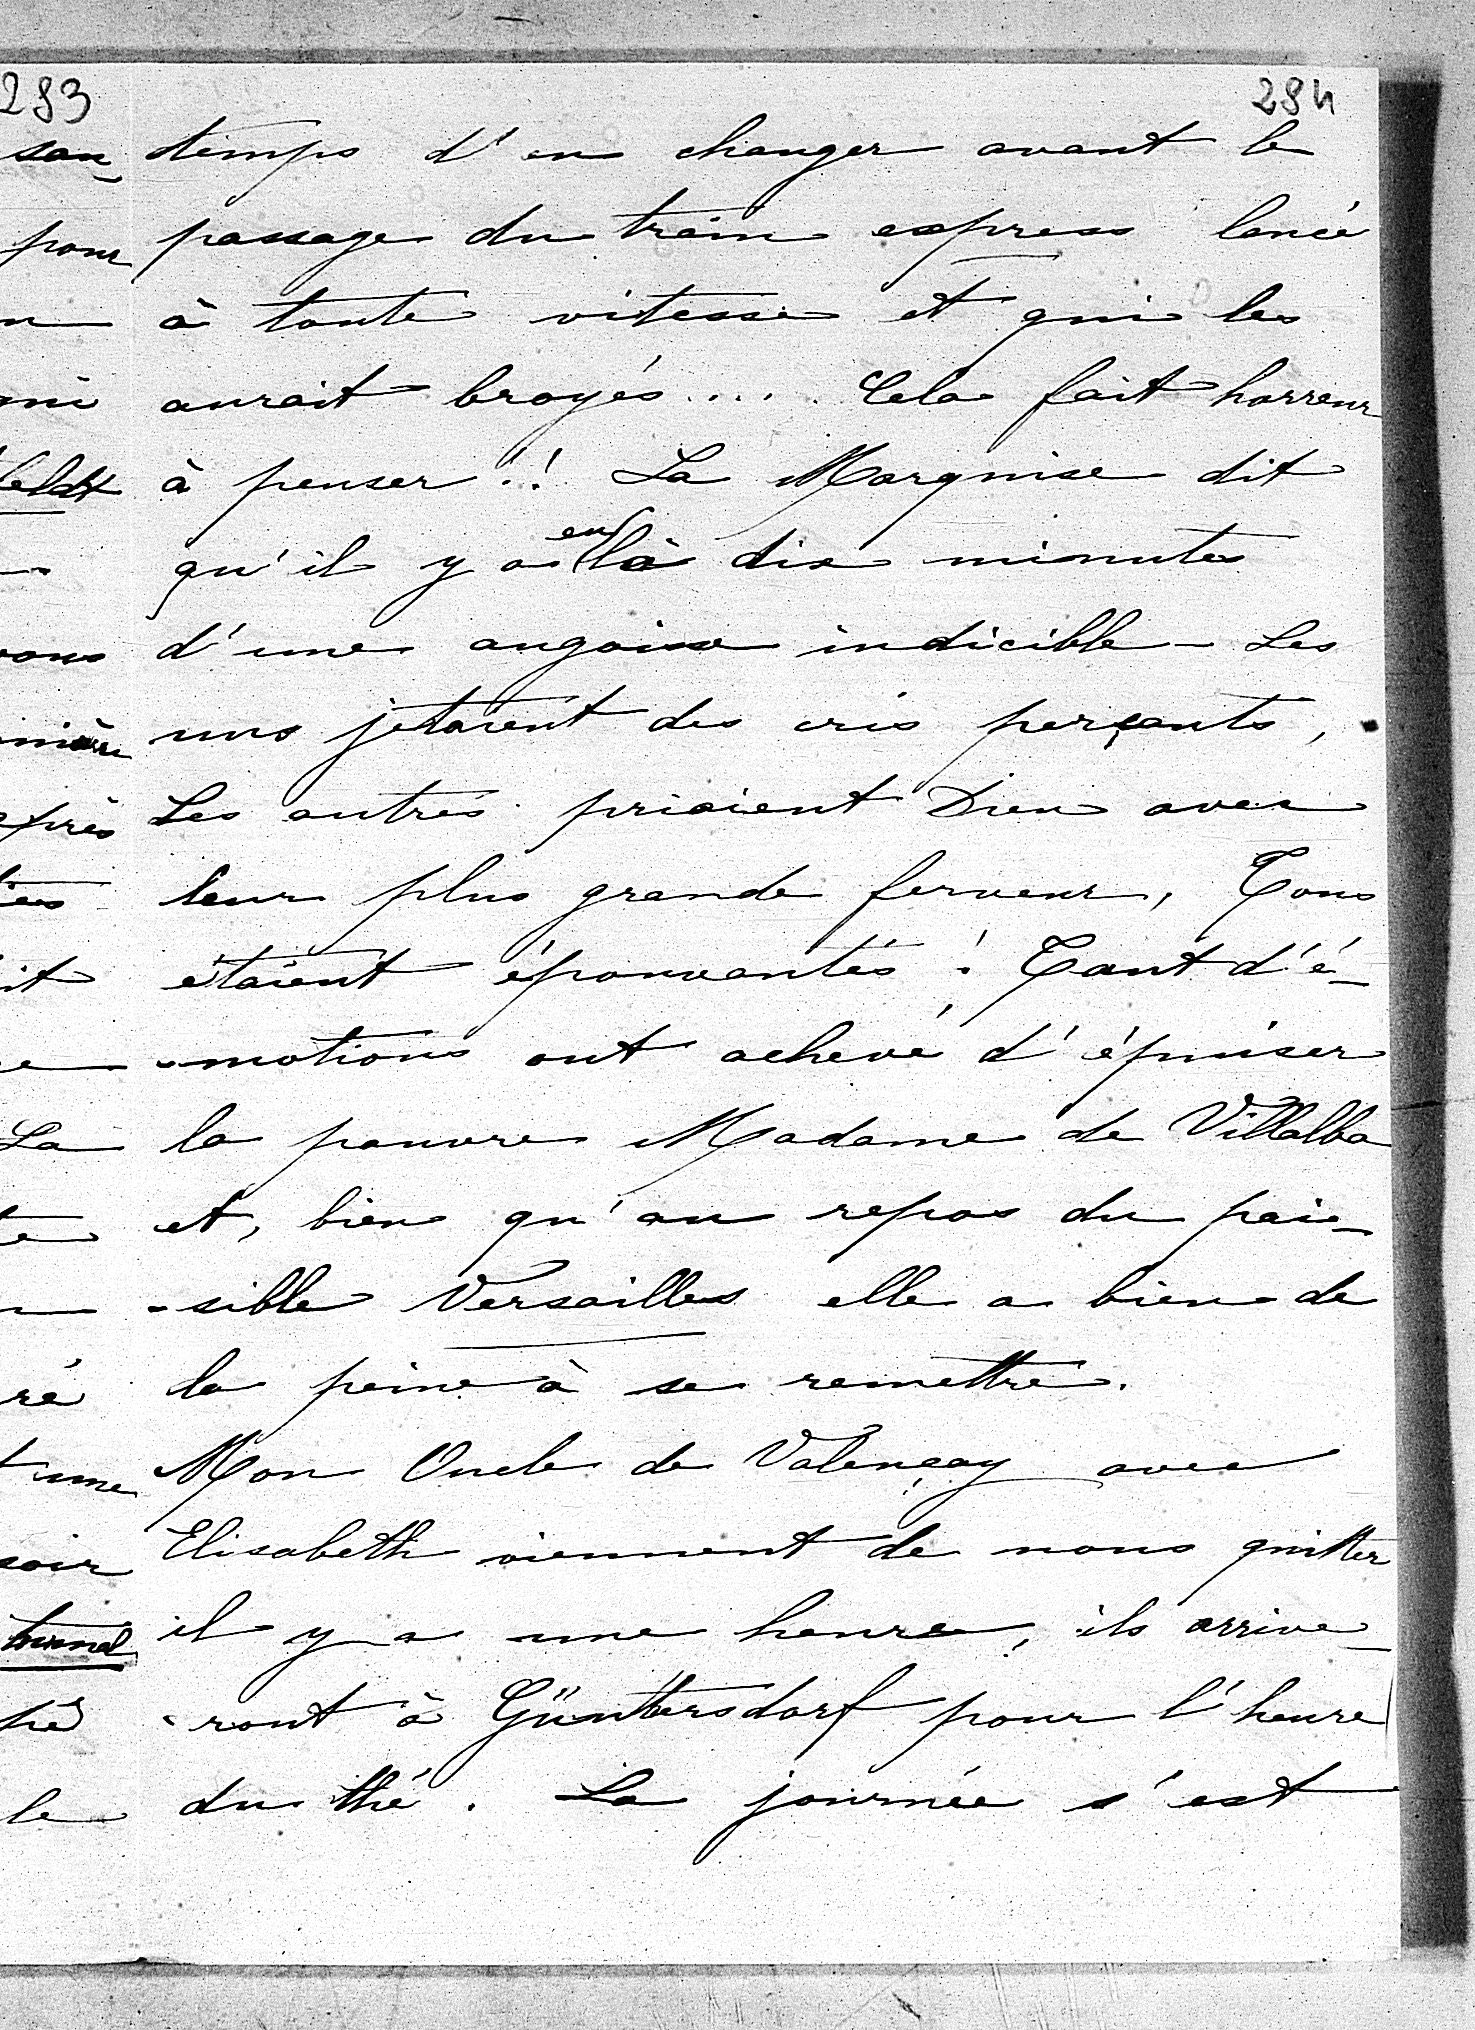 283
284
temps d'en changer avant le
passage du train express lancé
à toute vitesse et qui les
aurait broyés.... Cela fait horreur
à penser!! La Marquise dit
qu'il y a eu là dix minutes
d'une angoisse indicible - Les
uns jetaient des cris perçants,
Les autres priaient Dieu avec
leur plus grande ferveur, Tous
étaient épouvantés! Tant d'é-
-motions ont achevé d'épuiser
la pauvre Madame de Villalba
et, bien qu'au repos du pai-
-sible Versailles elle a bien de
la peine à se remettre.
Mon Oncle de Valençay avec
Elisabeth viennent de nous quitter
il y a une heure, ils arrive-
-ront à Güntersdorf pour l'heure
du thé. La journée s'est